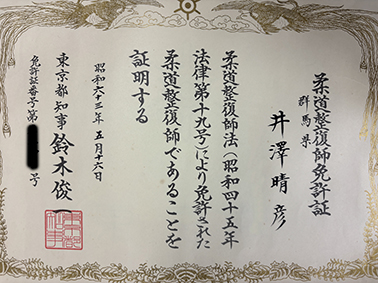 柔道整復師免許証
群馬県
井澤晴彦
柔道整復師法(昭和四十五年
法律第十九号)により免許された
柔道整復師であることを
証明する
昭和六十三年五月十六日
東京都知事 鈴木俊一
免許証番号第
号